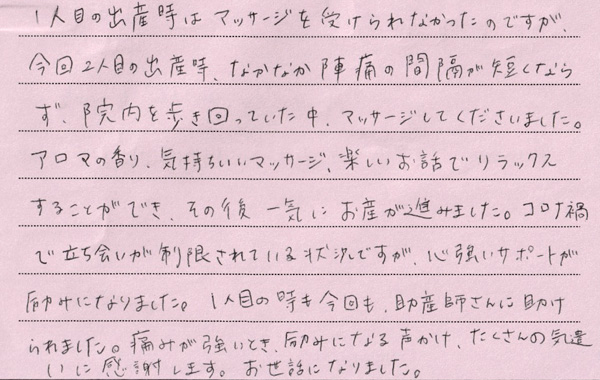 1人目の出産時はマッサージを受けられなかったのですが、
今回2人目の出産時、なかなか陣痛の間隔が短くなら
ず、院内を歩き回っていた中、マッサージしてくださいました。
アロマの香り、気持ちいいマッサージ、楽しいお話でリラックス
することができ、その後一気にお産が進みました。コロナ禍
で立ち会いが制限されている状況ですが、心強いサポートが
励みになりました。1人目の時も今回も、助産師さんに助け
られました。痛みが強いとき、励みになる声かけ、たくさんの気遣
いに感謝します。お世話になりました。